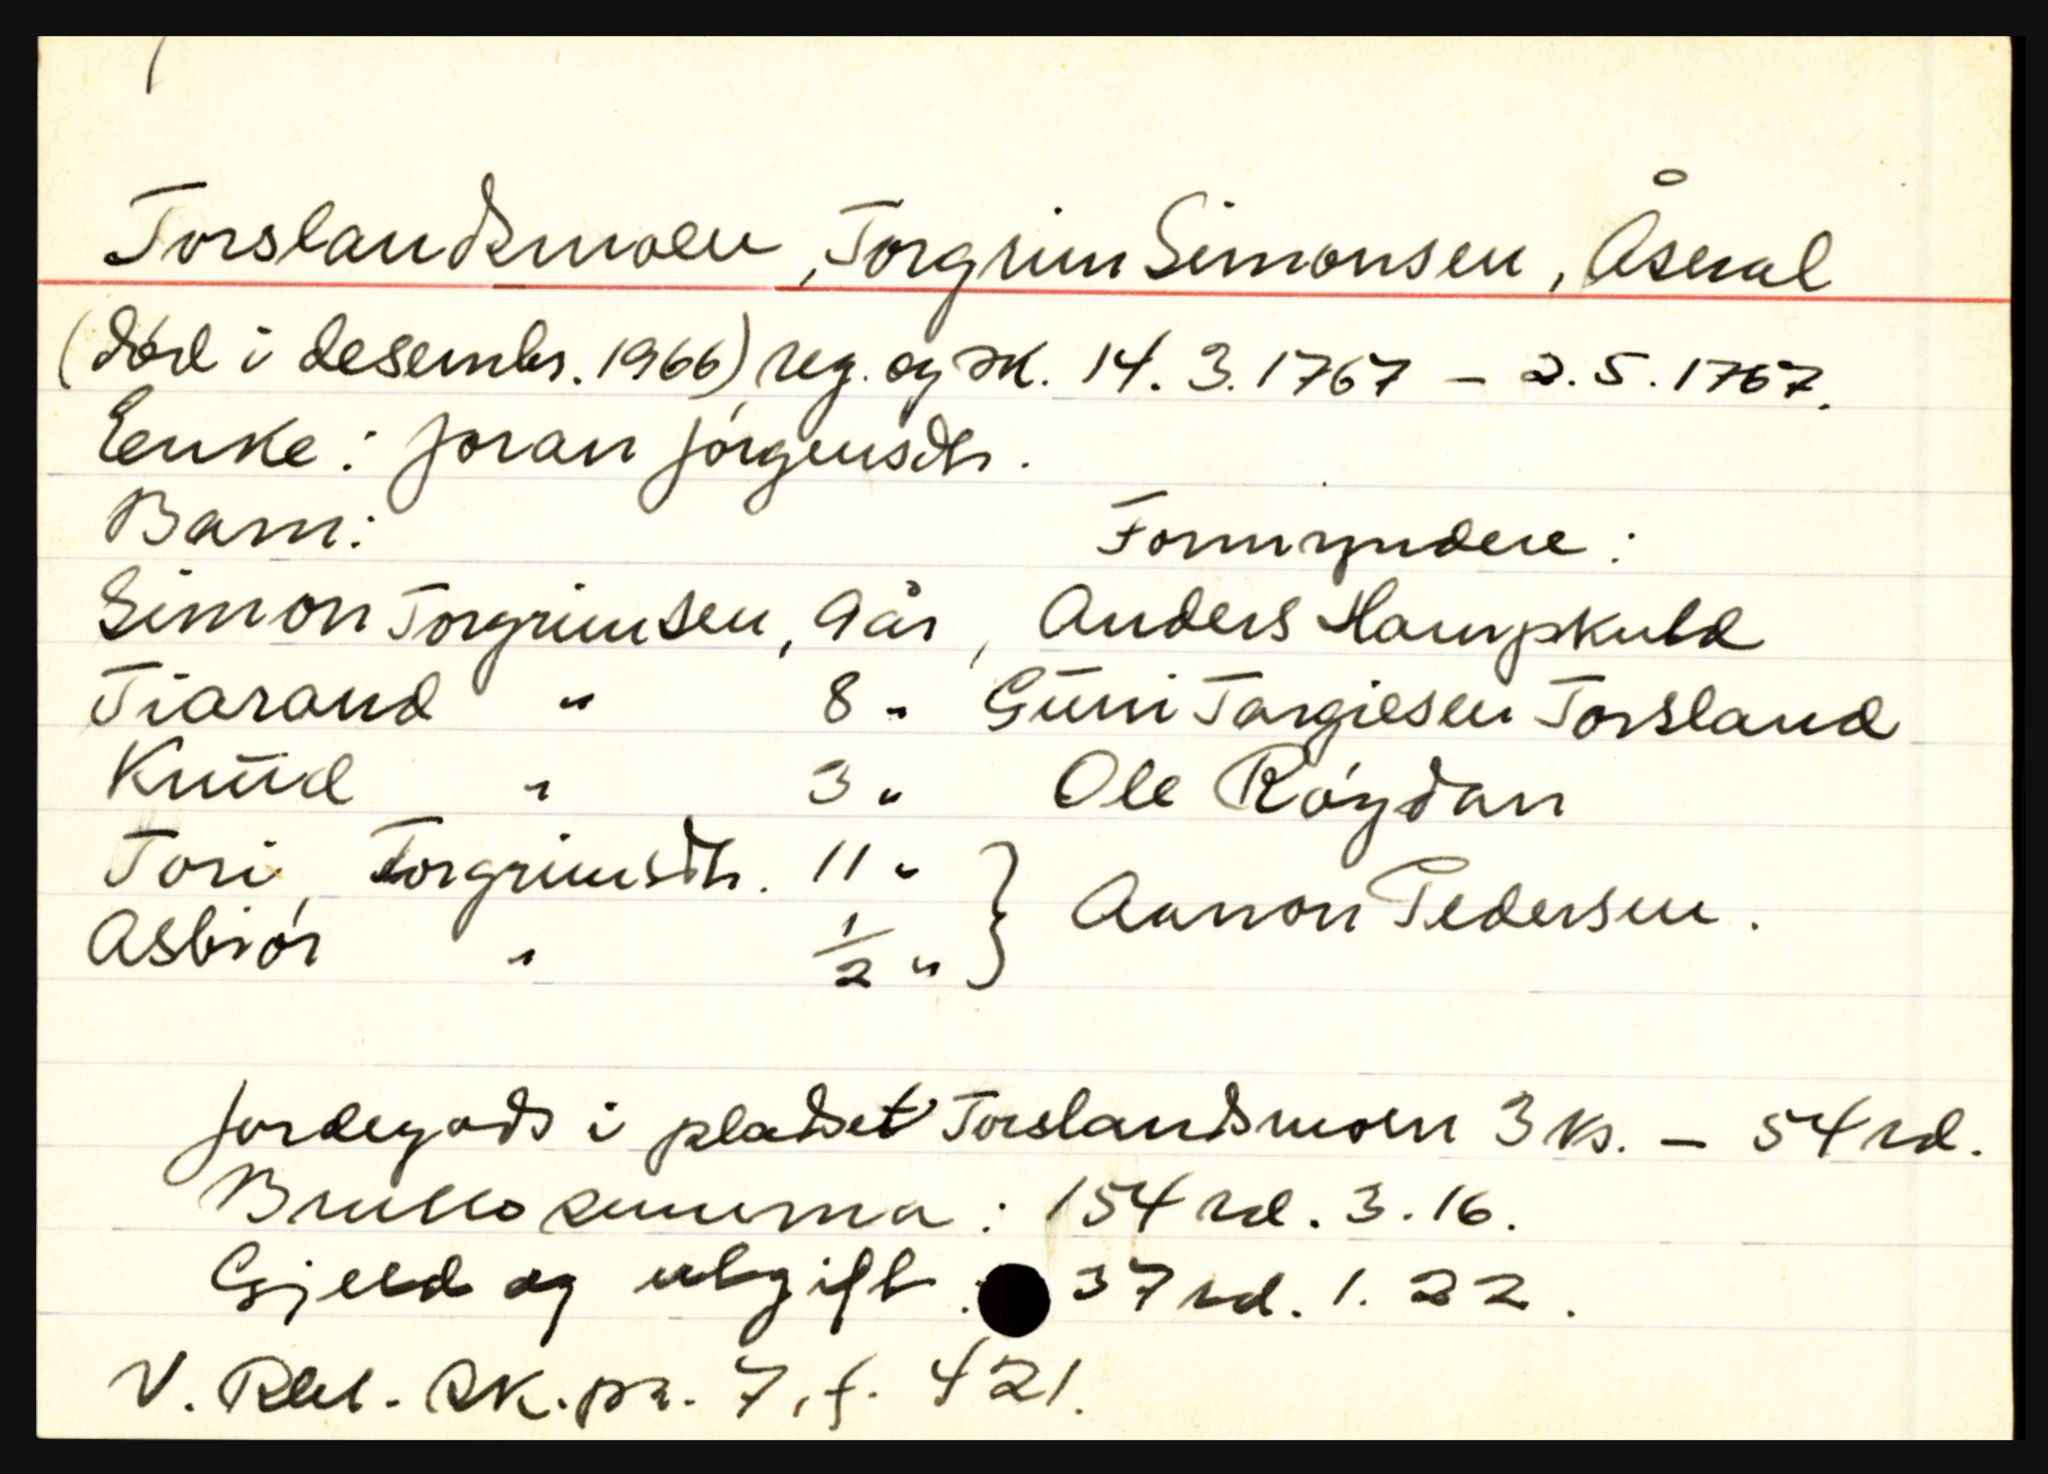 Torslandsmoen, Torgrim Simonsen, Åseral
(død i desembr. 1966) reg. og sk. 14. 3. 1767 - 2. 5. 1767.
Enke: Joran Jórgensdtr.
Barn: Formyndere:
Simon Torgrimsen, 9 år, Anders Hampkuld
Tiarand " 8 " Gŭni Targiesen Torsland
Knŭd " 3 " Ole Róydan
Tori, Torgrimsdtr. 11 " } Aanon Pedersen.
Asbiór " 1/2 "
Jordegods i pladset Torslandsmoen 3 ks. - 54 rd.
Brutto summa: 154 rd. 3. 16.
Gjeld og utgift. 37 rd. 1. 22.
V. Rbl. Sk. pr. 7, f. 421.